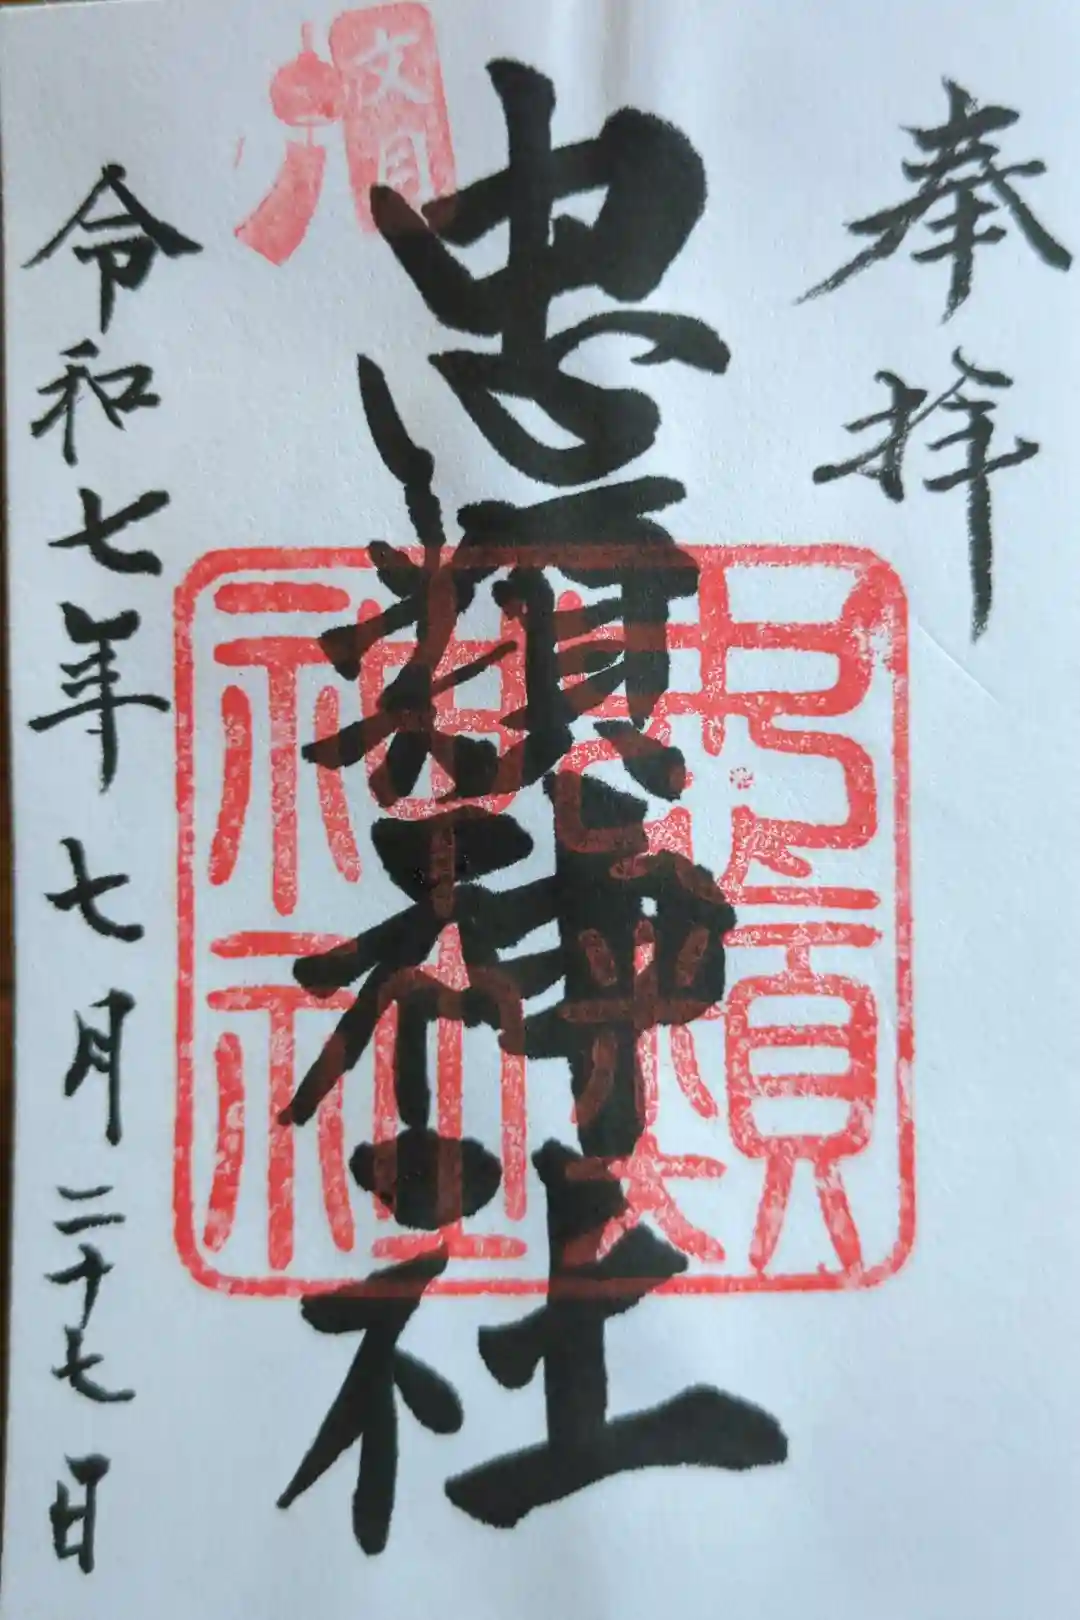 奉拝
忠類神社
忠類
神社
文月
令和七年七月二十七日